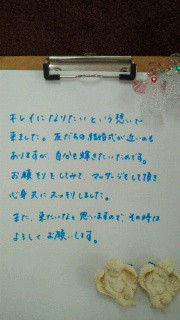 キレイになりたいという想いで
来ました。友だちの結婚式が近いのも
ありますが、自分も輝きたいためです。
お顔そりをしてみて、マッサージをして頂き、
心身共にスッキリしました。
また、来たいなと思いますので、その時は
よろしくお願いします。